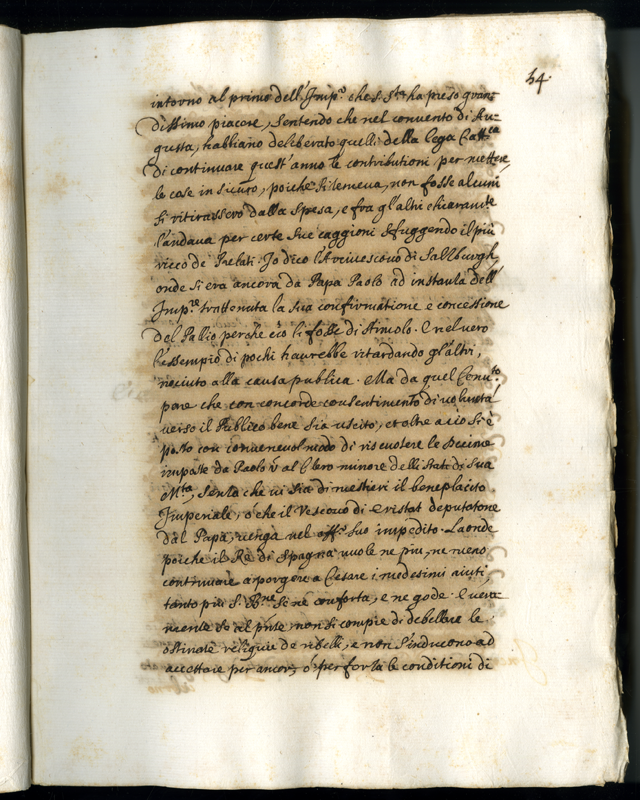 34.
intorno al primo dell'Imp.re che S. S.tà ha preso gran=
dissimo piacere, sentendo che nel convento di Au=
gusta, habbiano deliberato quelli della lega Catt.ca
di continuare quest'anno le contributioni per mettere
le cose in sicuro, poiche si temeva, non fosse alcuni
si ritirassero dalla spesa, e fra gl'altri chiaram.te
l'andava per certe sue caggioni sfuggendo il più
ricco de Prelati. Io dico l'Arcivescovo di Saltzburgh,
onde si era ancora da Papa Paolo ad instanza dell'
Imp.re trattenuta la sua confirmatione e concessione
del Pallio perche ciò li fosse di stimolo. E nel vero
l'essempio di pochi haurebbe ritardando gl'altri,
nociuto alla causa publica. Ma da quel Conu.to
pare che con concorde consentimento di voluntà
verso il Publico bene sia uscito, et oltre a ciò si è
posto con conuenevol modo di riscuotere le Decime
imposte da Paolo V al Clero minore delli Stati di Sua
M.tà, senza che vi sia di mestieri il beneplacito
Imperiale, o che il Vescovo di Eristat deputatone
dal Papa, venga nel off.o suo impedito. Laonde
poiche il Rè di Spagna vuole ne piu, ne meno
continuare a porgere a Cesare i medesimi aiuti,
tanto più S. B.ne si ne conforta, e ne gode. E vera
mente se al pnte non si compie di debellare le
ostinate reliquie de ribelli, e non s'inducono ad
accettare per amor, o per forza le conditioni di